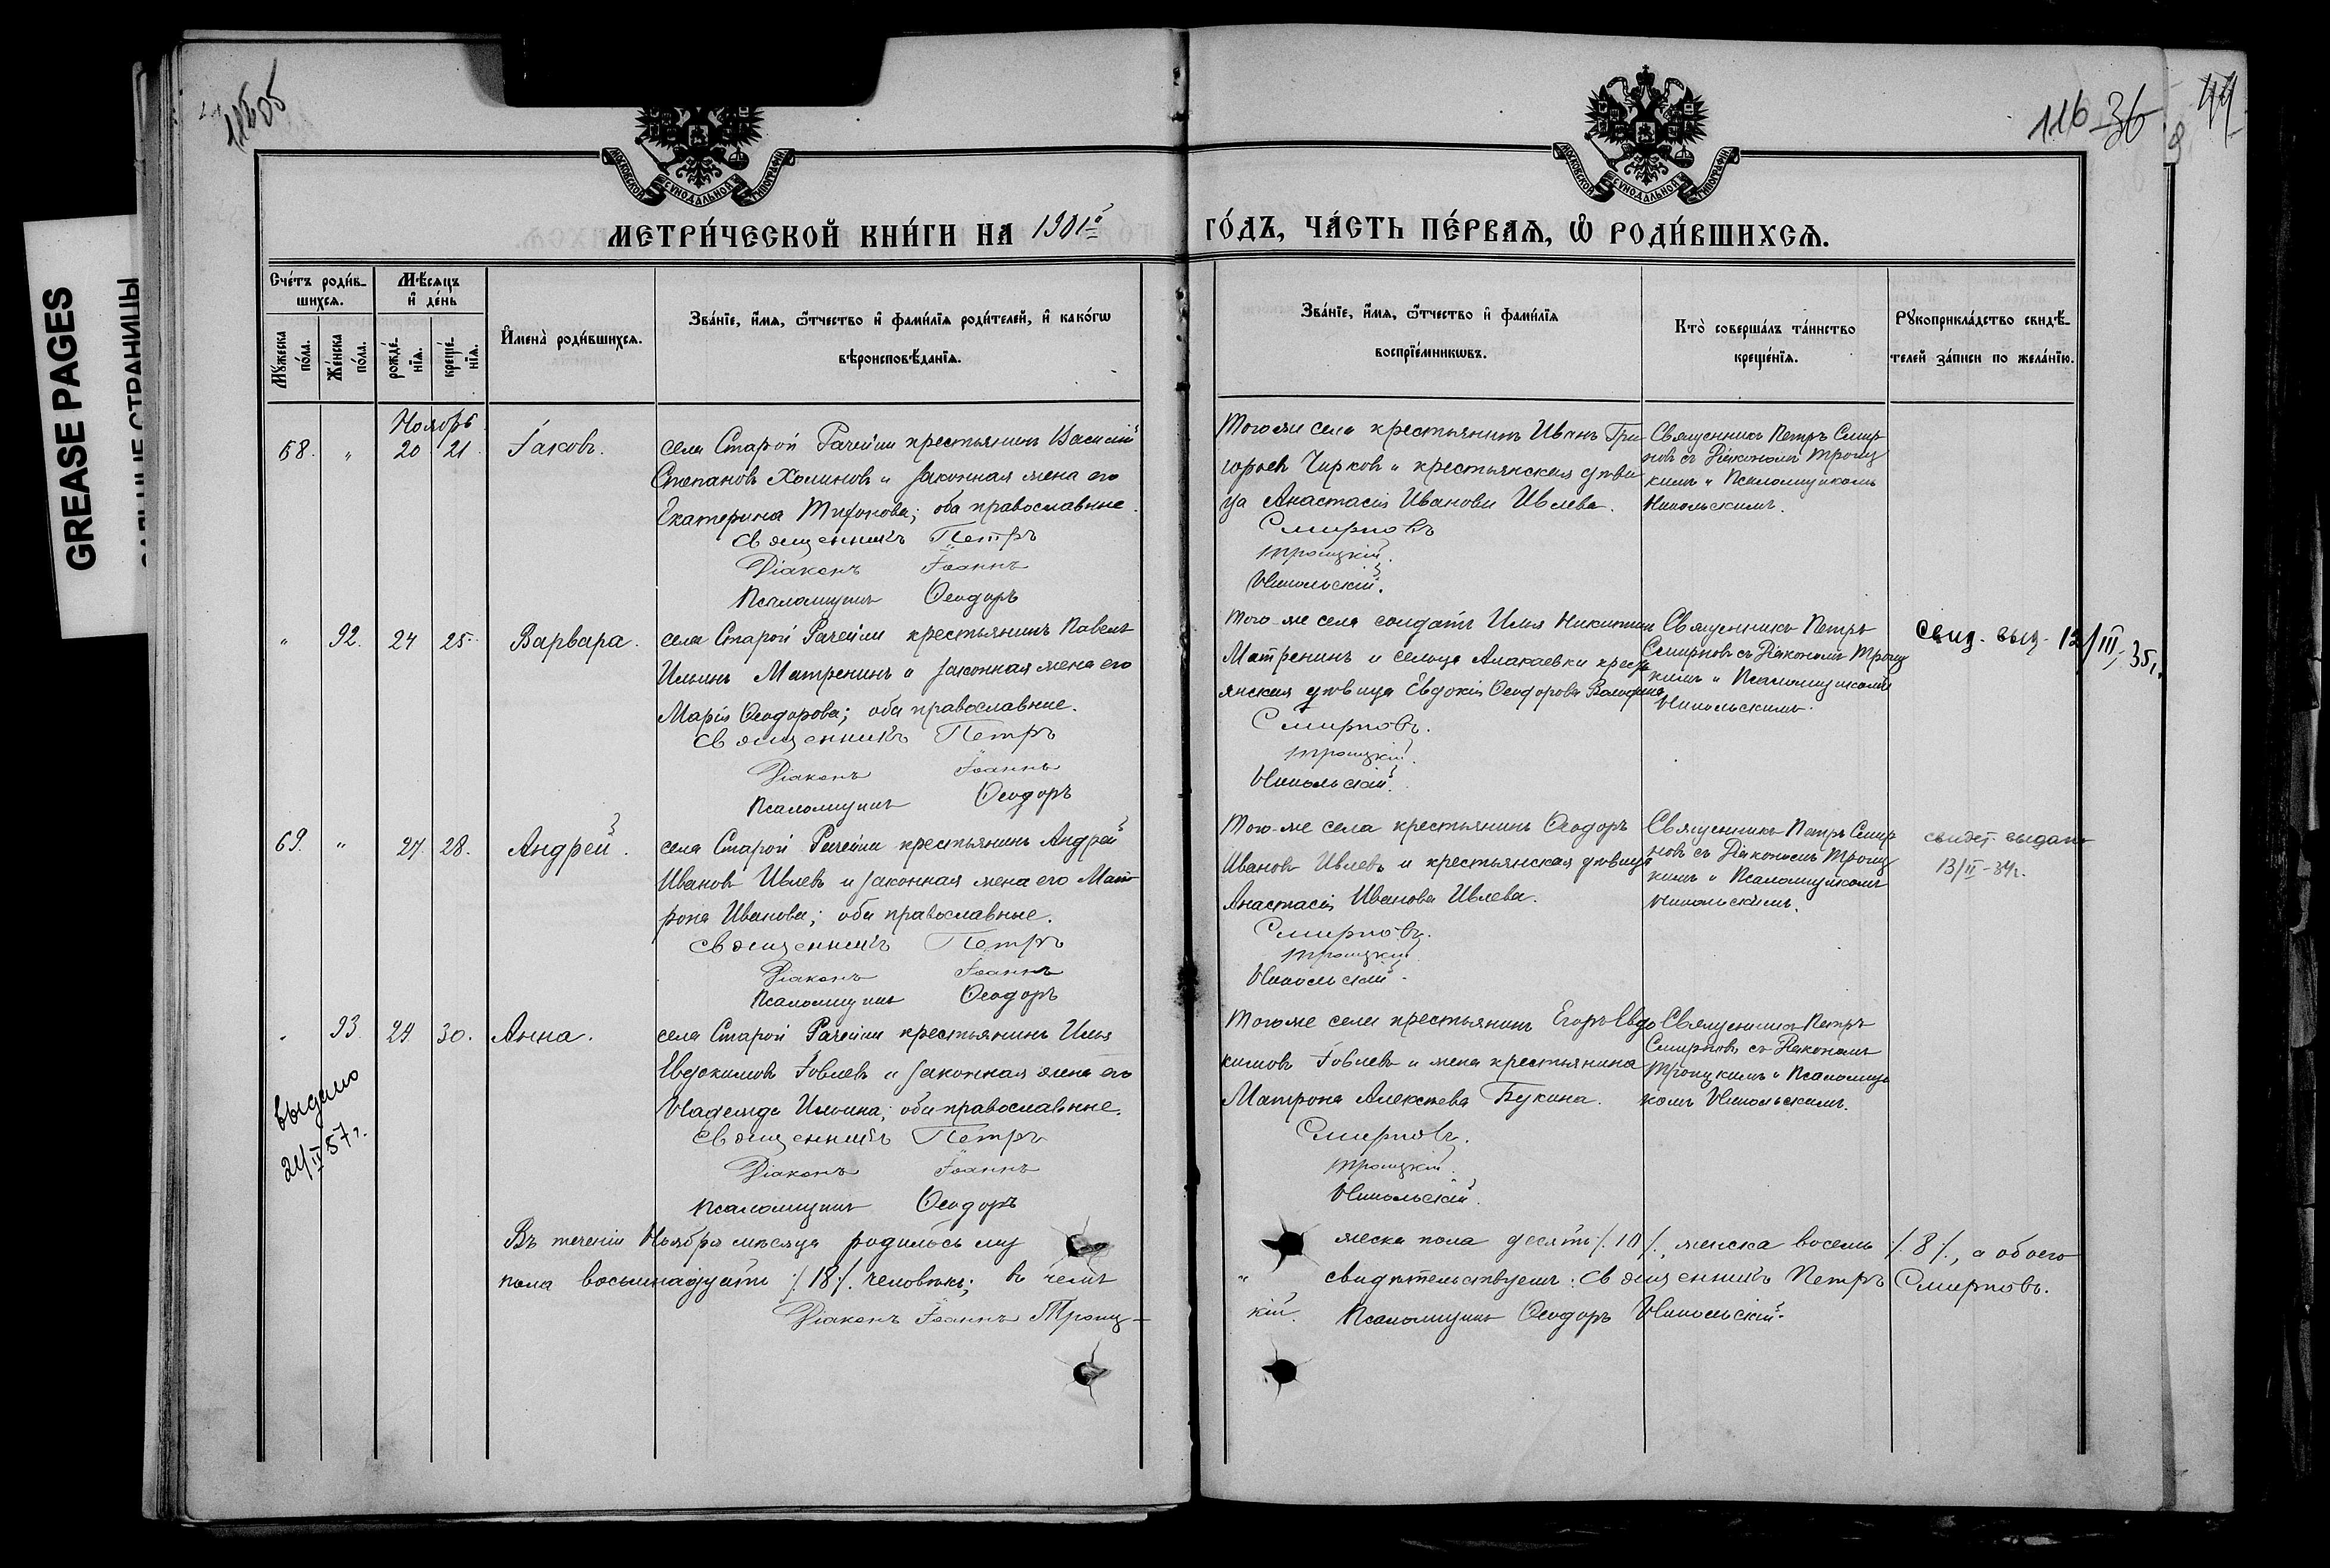 GREASE PAGES
116 36
44
МОСКОВСКОЙ СѴНОДАЛЬНОЙ ТИПОГРАФІИ
МОСКОВСКОЙ СѴНОДАЛЬНОЙ ТИПОГРАФІИ
МЕТРИ́ЧЕСКОЙ КНИ́ГИ НА 1901й
ГО́ДЪ, ЧА́СТЬ ПЕ́РВАѦ, Ѽ РОДИ́ВШИХСѦ.
Сче́тъ роди́в-
шихсѧ.
Мѣ́сѧцъ
и҆ де́нь
Мꙋ́жеска по́ла.
Же́нска по́ла.
рожде́нїѧ.
креще́нїѧ.
И҆мена̀ роди́вшихсѧ.
Зва́нїе, и҆́мѧ, ѻ҆́тчество и҆ фами́лїѧ роди́телей, и҆ како́гѡ
вѣроисповѣ́данїѧ.
Зва́нїе, и҆́мѧ, ѻ҆́тчество и҆ фами́лїѧ
воспрїе́мникѡвъ.
Кто̀ соверша́лъ та́инство
креще́нїѧ.
Рꙋкоприкла́дство свидѣ́-
телей за́писи по жела́нїю.
Ноябрь
68. " 20 21 Іаковъ.
села Старой Рачейки крестьянинъ Василій
Степановъ Холиновъ и законная жена его
Екатерина Тифонова; оба православные.
Священникъ Петръ
Діаконъ Іоаннъ
Псаломщикъ Ѳеодоръ
Того же села крестьянинъ Иванъ Гри-
горьевъ Чирковъ и крестьянская дѣви-
ца Анастасія Иванова Ивлева.
Смирновъ
Троицкій.
Никольскій.
Священникъ Петръ Смир-
новъ съ Діакономъ Троиц-
кимъ и Псаломщикомъ
Никольскимъ.
" 92. 24 25. Варвара.
села Старой Рачейки крестьянинъ Павелъ
Ильинъ Матренинъ и законная жена его
Марія Ѳеодорова; оба православные.
Священникъ Петръ
Діаконъ Іоаннъ
Псаломщикъ Ѳеодоръ
Того-же села солдатъ Илья Никитинъ
Матренинъ и сельца Алакаевки кресть-
янская дѣвица Евдокія Ѳеодорова
Смирновъ.
Троицкій.
Никольскій.
Священникъ Петръ
Смирновъ съ Діакономъ Троиц-
кимъ и Псаломщикомъ
Никольскимъ.
Свид. выд. 13/III-35г.
69. " 27. 28. Андрей.
села Старой Рачейки крестьянинъ Андрей
Ивановъ Ивлевъ и законная жена его Мат-
рона Иванова; оба православные.
Священникъ Петръ
Діаконъ Іоаннъ
Псаломщикъ Ѳеодоръ
Того-же села крестьянинъ Ѳеодоръ
Ивановъ Ивлевъ и крестьянская дѣвица
Анастасія Иванова Ивлева.
Смирновъ.
Троицкій.
Никольскій.
Священникъ Петръ Смир-
новъ съ Діакономъ Троиц-
кимъ и Псаломщикомъ
Никольскимъ.
свидет. выдано
13/II-34г.
93 29 30. Анна.
села Старой Рачейки крестьянинъ Илья
Евдокимовъ Іовлевъ и законная жена его
Надежда Ильина; оба православные.
Священникъ Петръ
Діаконъ Іоаннъ
Псаломщикъ Ѳеодоръ
Того же села крестьянинъ Егоръ Евдо-
кимовъ Іовлевъ и жена крестьянина
Матрона Алексѣева Букина.
Смирновъ.
Троицкій.
Никольскій.
Священникъ Петръ
Смирновъ съ Діакономъ
Троицкимъ и Псаломщи-
комъ Никольскимъ.
выдано
24/IV 57г.
Въ теченіи Ноября мѣсяца родилось му
жеска пола десять /.10/., женска восемь /.8/., а обоего
пола восьмнадцать /.18/. человѣкъ; въ чемъ
" свидѣтельствуемъ: Священникъ Петръ Смирновъ.
Діаконъ Іоаннъ Троиц-
кій. Псаломщикъ Ѳеодоръ Никольскій.